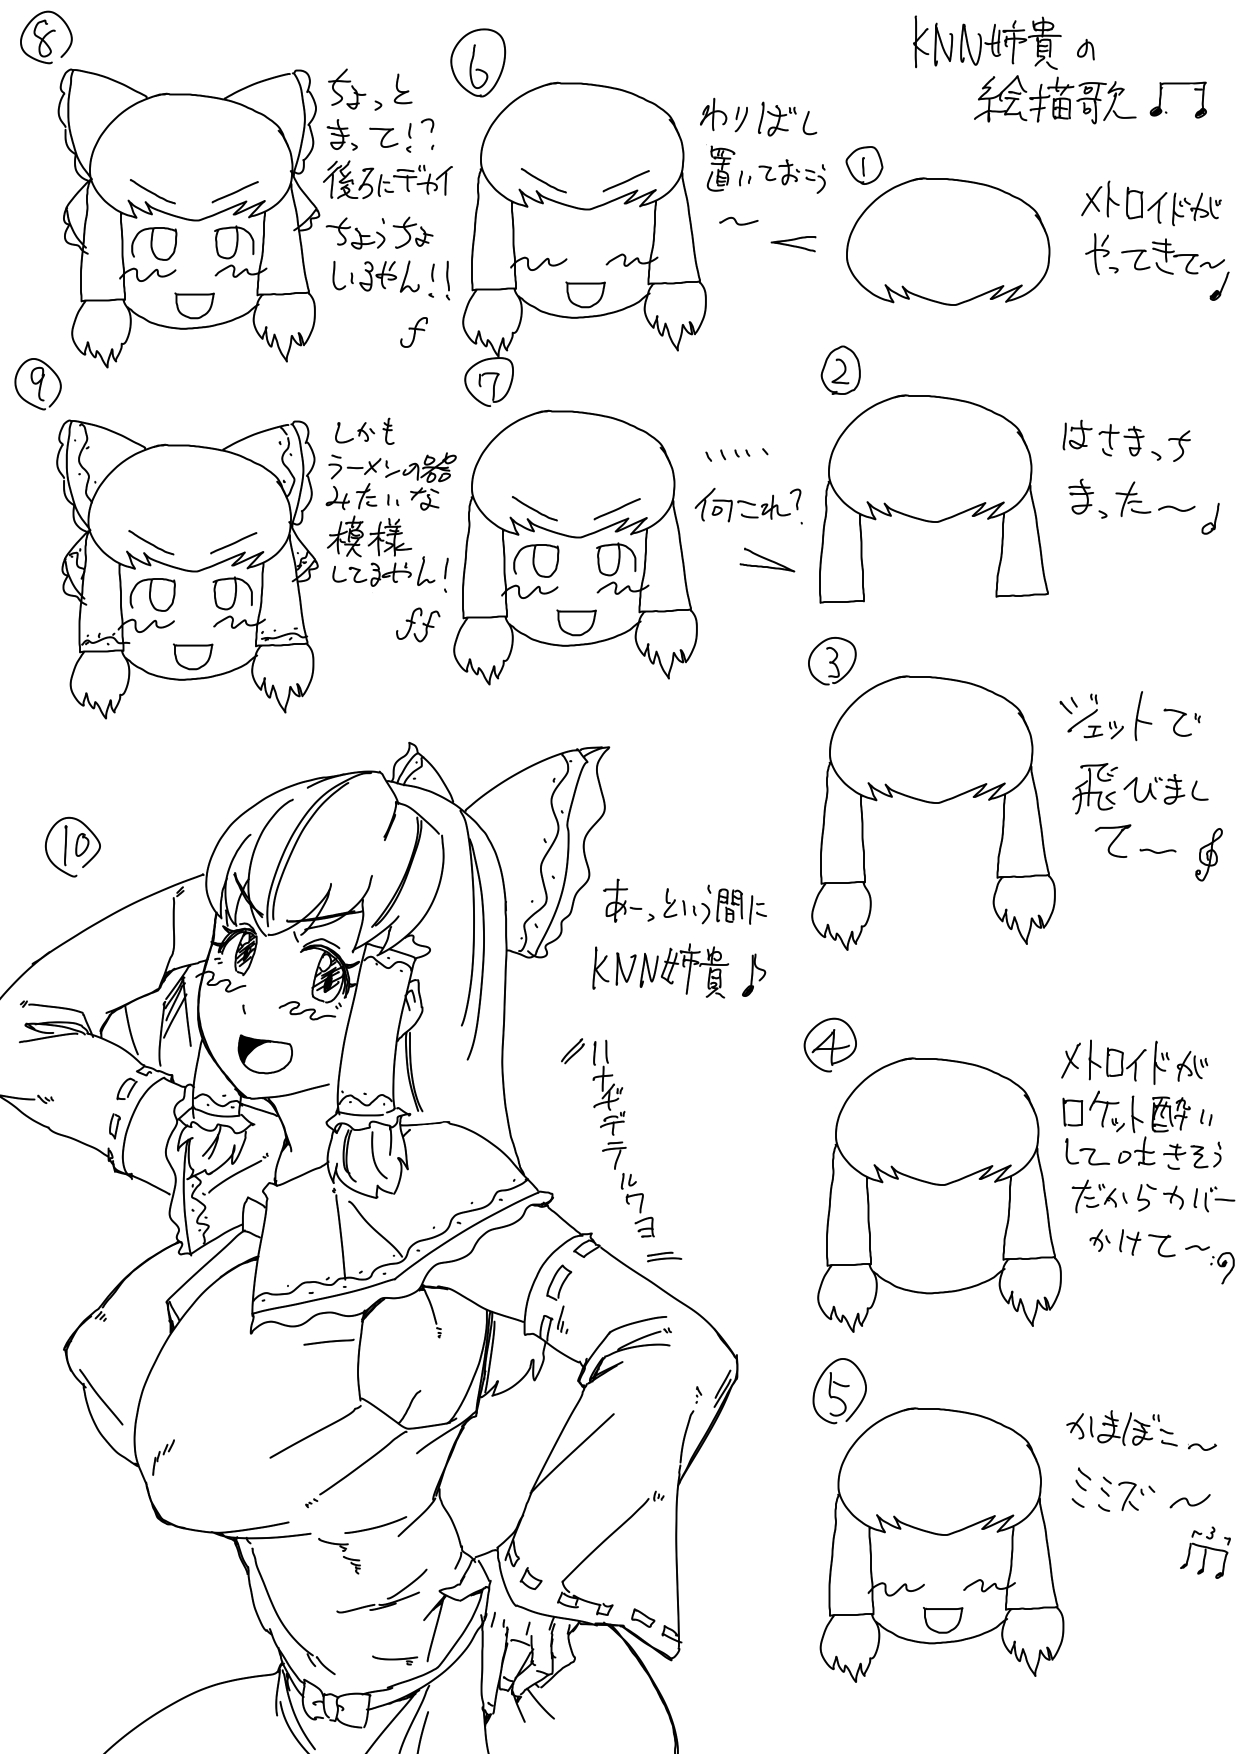 KNN姉貴の
絵描歌
①
メトロイドが
やってきて〜
②
はさまっち
まった〜
③
ジェットで
飛びまし
て〜
④
メトロイドが
ロケット酔い
して吐きそう
だからカバー
かけて〜
⑤
かまぼこ〜
ミミズ〜
3
⑥
わりばし
置いておこう
〜
⑦
・・・・・
何これ?
⑧
ちょっと
まって!?
後ろにデカイ
ちょうちょ
いるやん!!
f
⑨
しかも
ラーメンの器
みたいな
模様
してるやん!
ff
⑩
あーっという間に
KNN姉貴♪
ハナギデテルワヨ